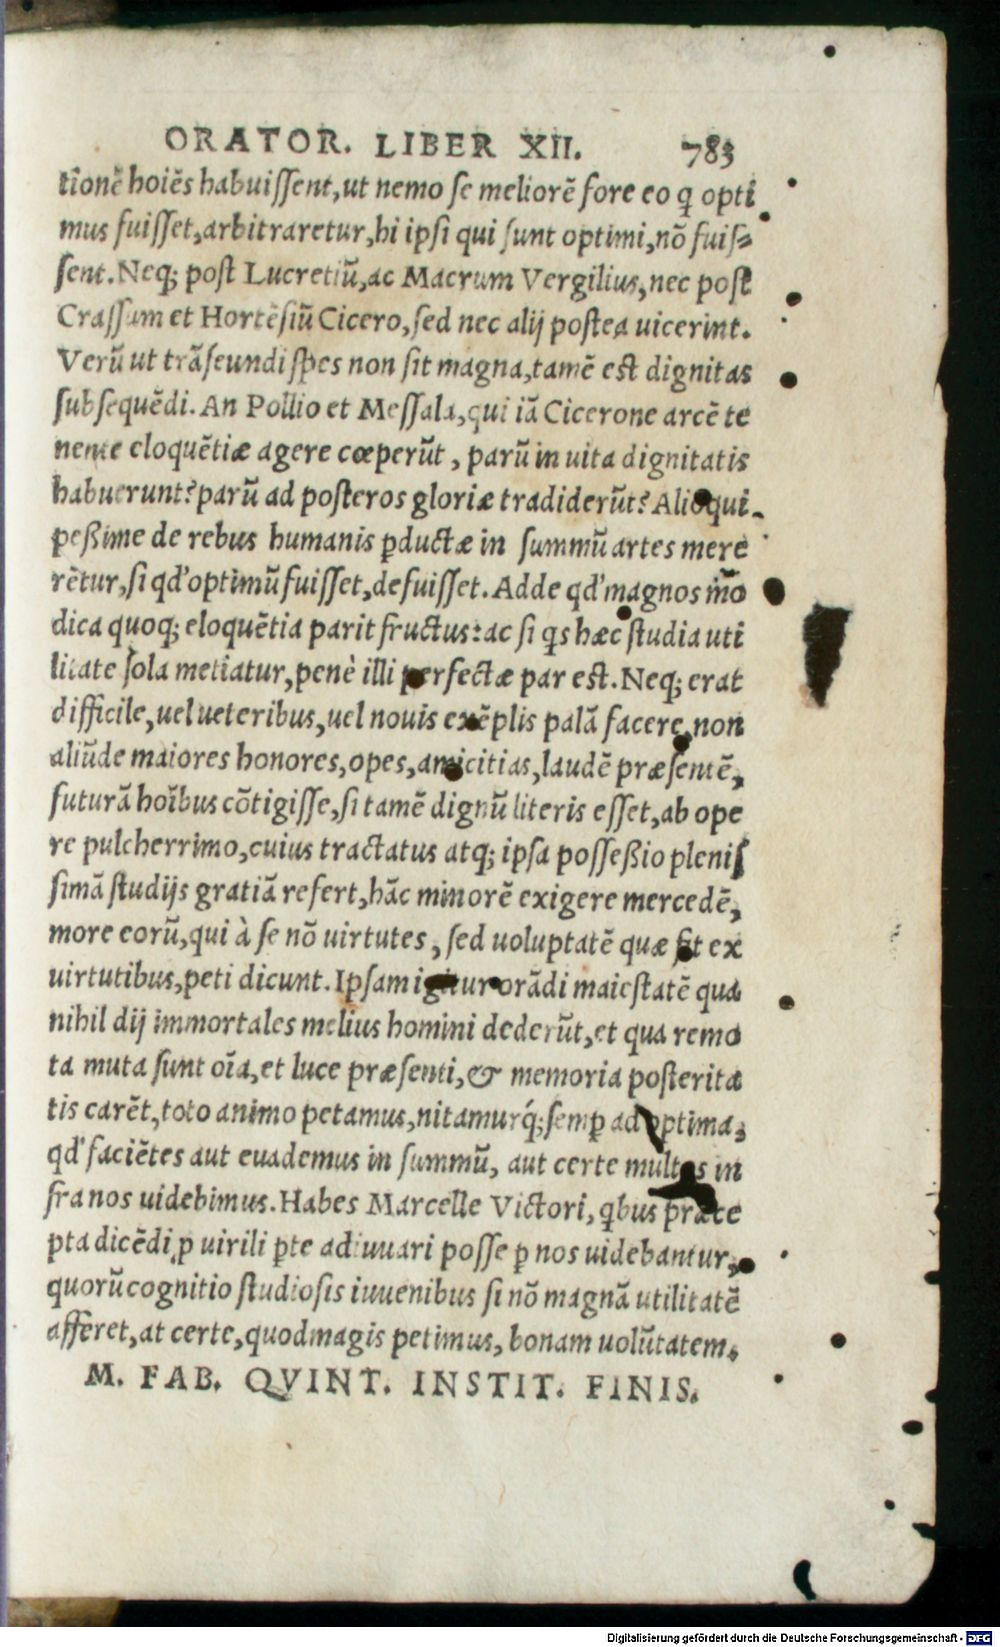 ORATOR. LIBER XII. 783
tionē hoiēs habuissent, ut nemo se meliorē fore eo q̃ opti
mus fuisset, arbitraretur, hi ipsi qui sunt optimi, nō fuis-
sent. Neq; post Lucretiū, ac Macrum Vergilius, nec post
Crassum et Hortēsiū Cicero, sed nec alij postea uicerint.
Verū ut trāseundi spes non sit magna, tamē est dignitas
subsequēdi. An Pollio et Messala, qui iā Cicerone arcē te
nente eloquētiæ agere cœperūt, parū in uita dignitatis
habuerunt? parū ad posteros gloriæ tradiderūt? Alioqui
peßime de rebus humanis ꝑductæ in summū artes mere
rētur, si qd' optimū fuisset, defuisset. Adde qd' magnos mō
dica quoq; eloquētia parit fructus: ac si q̃s hæc studia uti
litate sola metiatur, penè illi perfectæ par est. Neq; erat
difficile, uel ueteribus, uel nouis exēplis palā facere, non
aliūde maiores honores, opes, amicitias, laudē præsentē,
futurā hoībus cōtigisse, si tamē dignū literis esset, ab ope
re pulcherrimo, cuius tractatus atq; ipsa posseßio plenis
simā studijs gratiā refert, hāc minorē exigere mercedē,
more eorū, qui à se nō uirtutes, sed uoluptatē quæ fit ex
uirtutibus, peti dicunt. Ipsam igitur orādi maiestatē qua
nihil dij immortales melius homini dederūt, et qua remo
ta muta sunt oīa, et luce præsenti, & memoria posterita
tis carēt, toto animo petamus, nitamurq́; semꝑ ad optima,
qd' faciētes aut euademus in summū, aut certe multos in
fra nos uidebimus. Habes Marcelle Victori, q̃bus præce
pta dicēdi ꝓ uirili ꝑte adiuuari posse ꝑ nos uidebantur,
quorū cognitio studiosis iuuenibus si nō magnā utilitatē
afferet, at certe, quod magis petimus, bonam uolūtatem.
M. FAB. QVINT. INSTIT. FINIS.
Digitalisierung gefördert durch die Deutsche Forschungsgemeinschaft - DFG